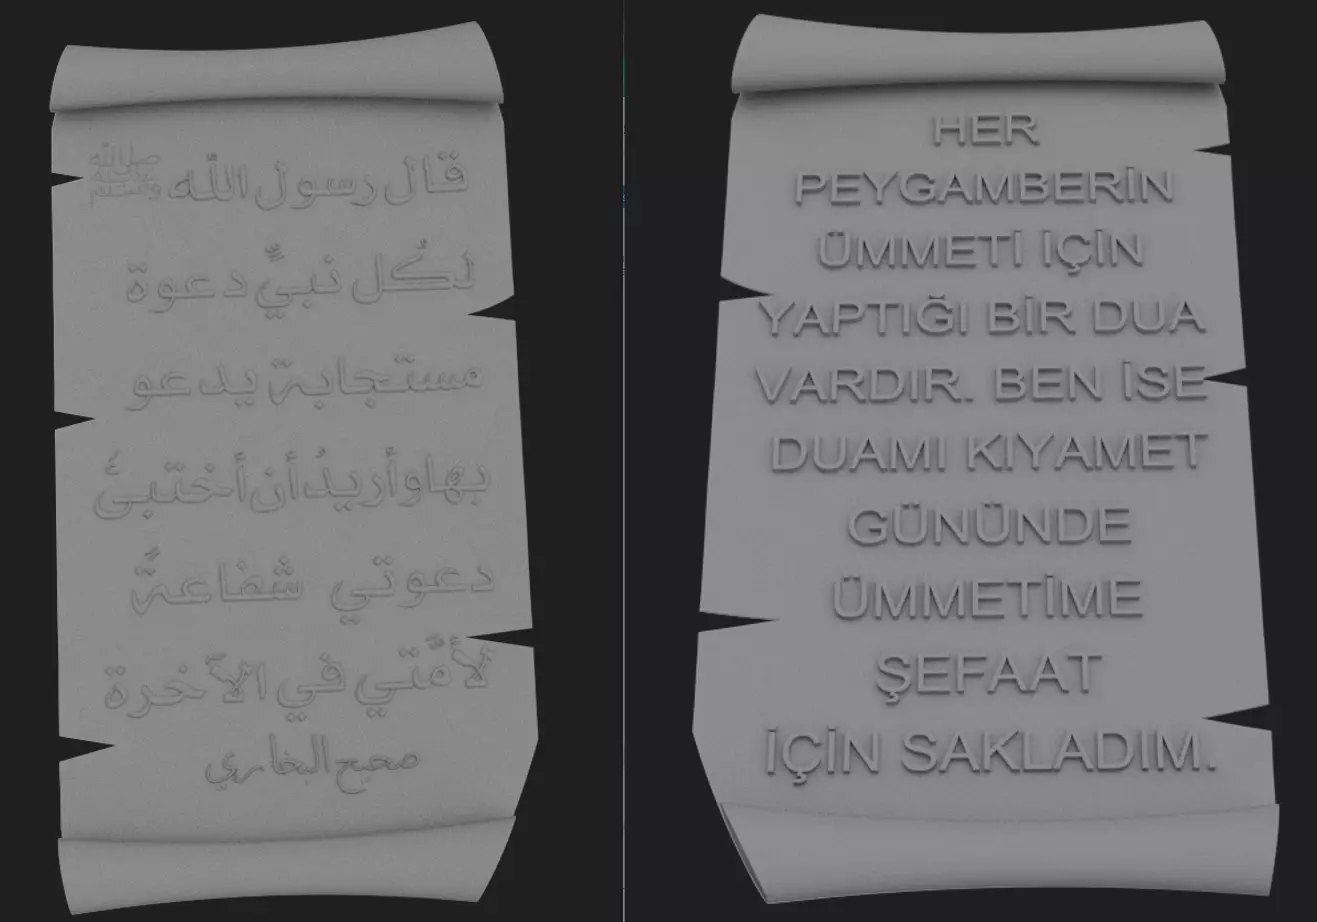 قال رسول الله ﷺ
لكُل نبيٍّ دعوة
مستجابة يدعو
بها وأريدُ أن أختبئُ
دعوتي شفاعةٌ
لأمَّتي في الآخرة
صحيح البخاري
HER
PEYGAMBERİN
ÜMMETİ İÇİN
YAPTIĞI BİR DUA
VARDIR. BEN İSE
DUAMI KIYAMET
GÜNÜNDE
ÜMMETİME
ŞEFAAT
İÇİN SAKLADIM.